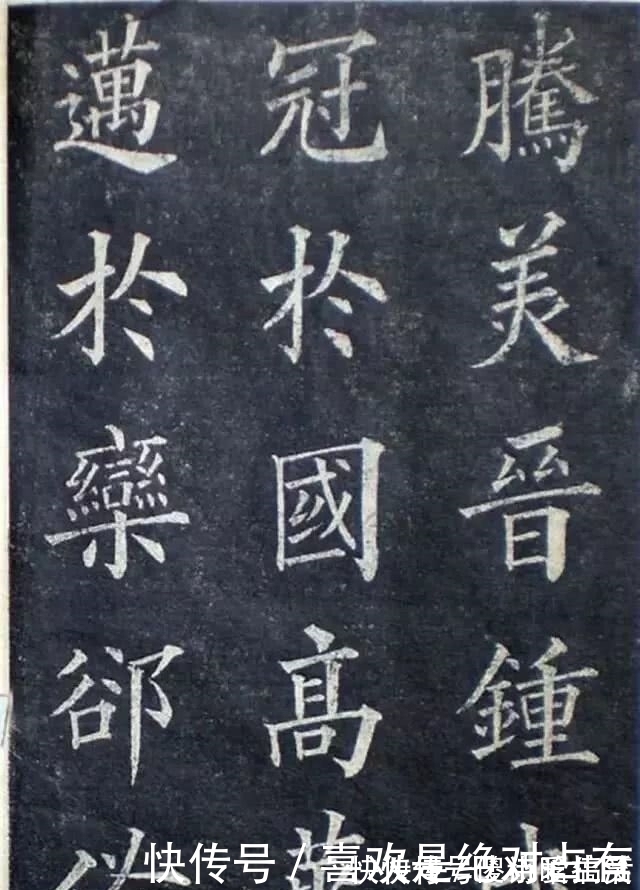 騰美晉鍾
冠於國高
邁於欒郤以
快传号/喜欢是绝对占有